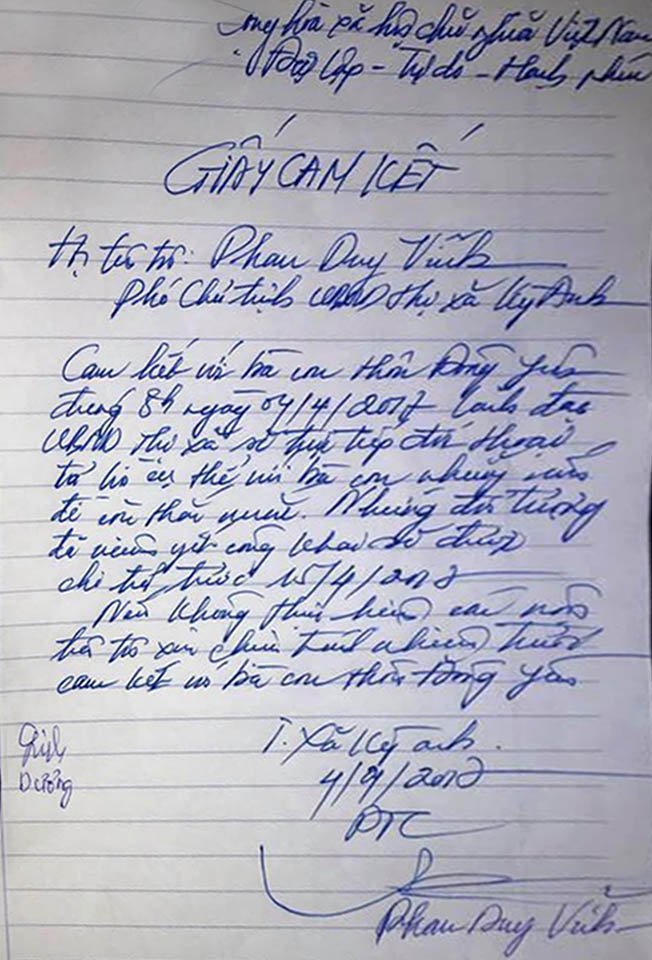 Cộng hòa xã hội chủ nghĩa Việt Nam
Độc lập - Tự do - Hạnh phúc
GIẤY CAM KẾT
Họ tên tôi: Phan Duy Vĩnh
Phó Chủ tịch UBND thị xã Kỳ Anh
Cam kết với bà con thôn Đông Yên
đúng 8h ngày 07/4/2017 lãnh đạo
UBND thị xã sẽ trực tiếp đối thoại
trả lời cụ thể với bà con những vấn
đề còn thắc mắc. Những đối tượng
đã niêm yết công khai sẽ được
chi trả trước 15/4/2017
Nếu không thực hiện các nội
tôi xin chịu trách nhiệm trước
cam kết với bà con thôn Đông Yên
T. Xã Kỳ Anh.
4/4/2017
PTC
Phan Duy Vĩnh
Dương